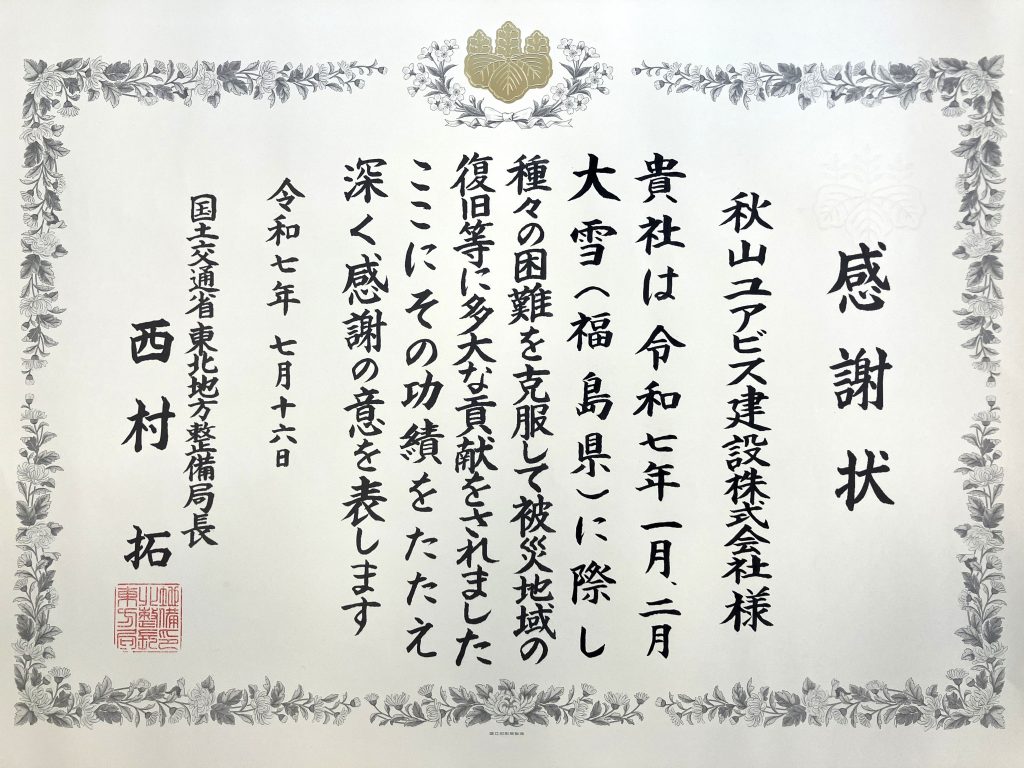 感謝状
秋山ユアビス建設株式会社様
貴社は令和七年一月、二月
大雪(福島県)に際し
種々の困難を克服して被災地域の
復旧等に多大な貢献をされました
ここにその功績をたたえ
深く感謝の意を表します
令和七年 七月十六日
国土交通省東北地方整備局長
西村 拓